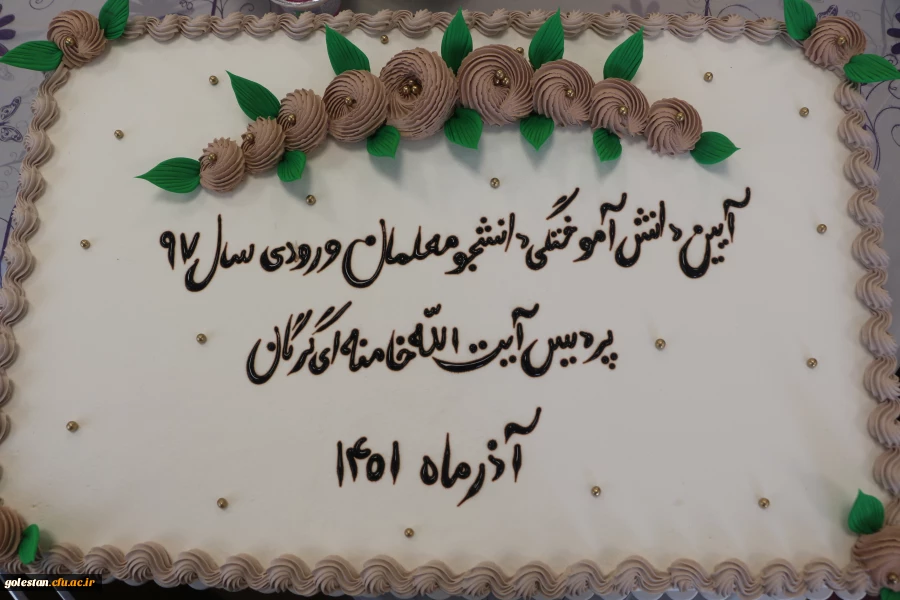 آیین دانش آموختگی دانشجو معلمان ورودی سال ۹۷
پردیس آیت الله خامنه ای گرگان
آذر ماه ۱۴۰۱
golestan.cfu.ac.ir